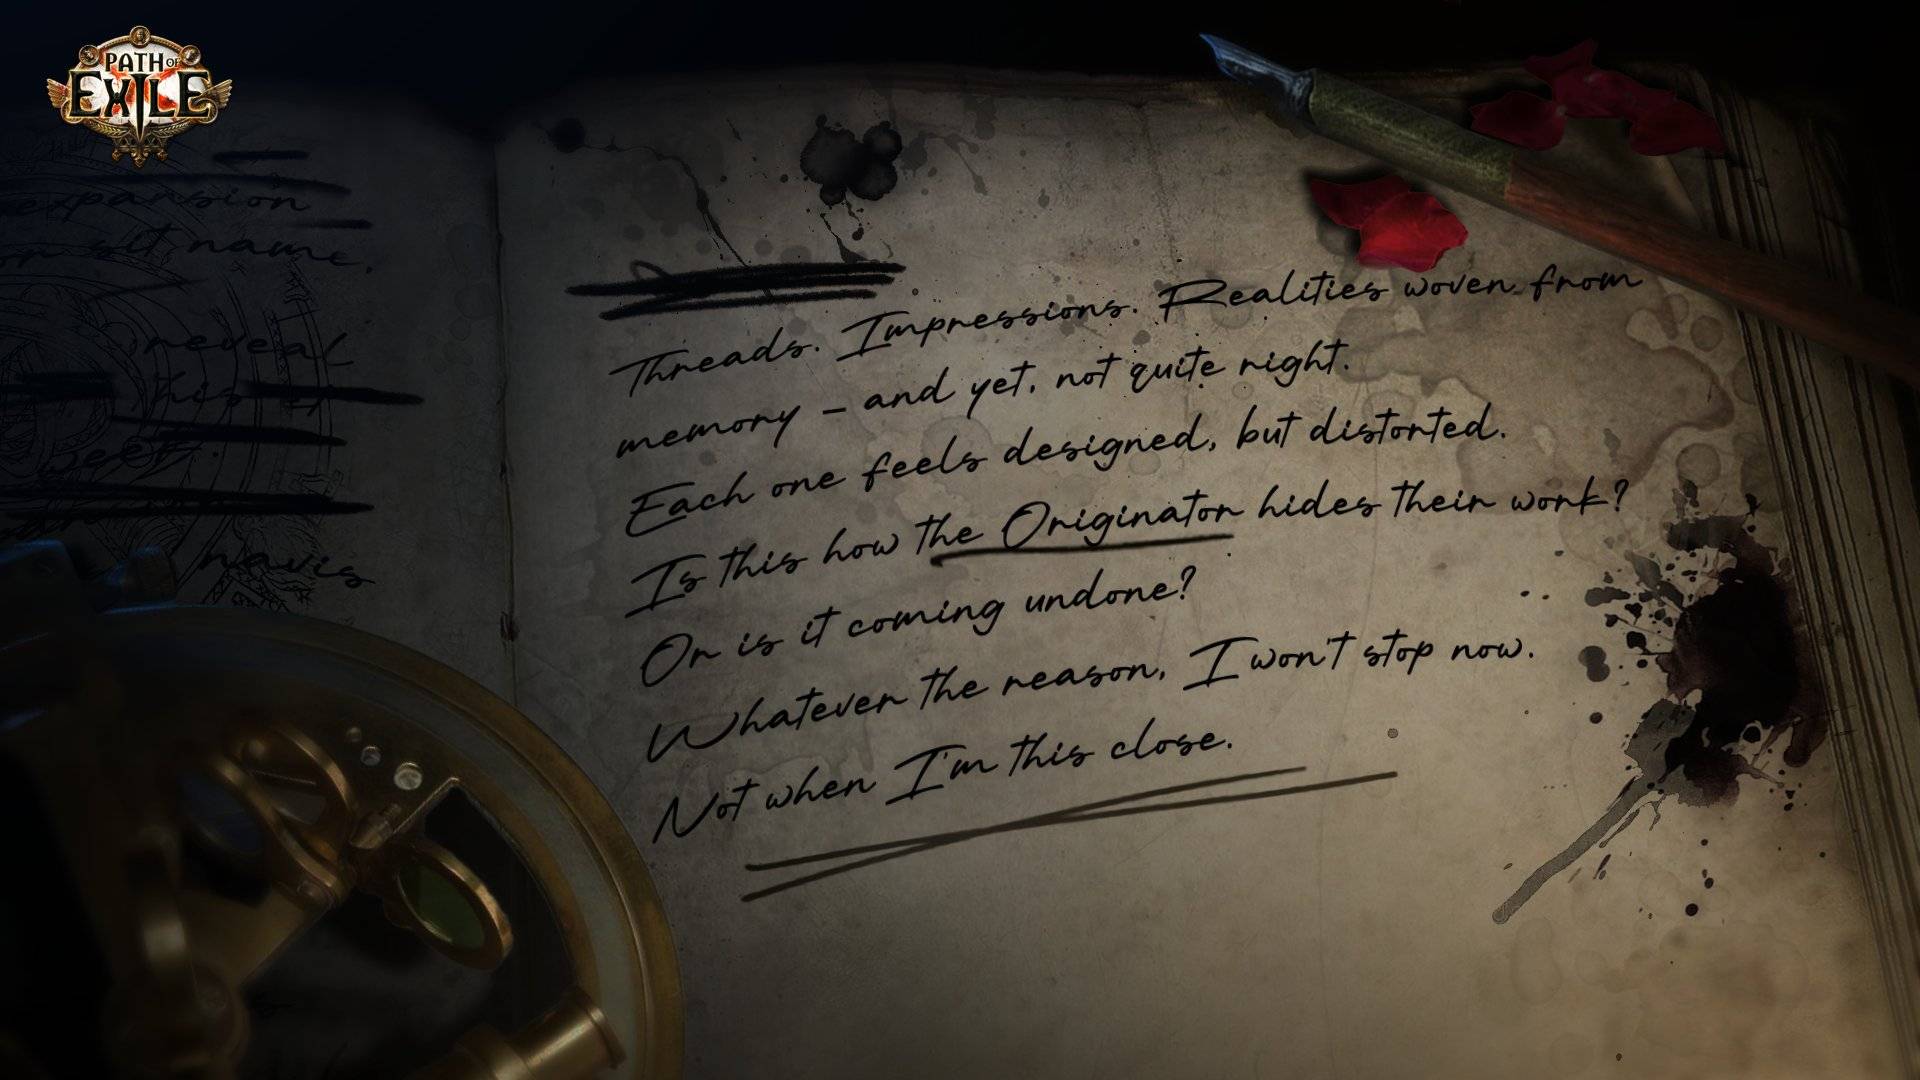 PATH OF
EXILE
expansion
sit name.
reveal
his
week.
navis
Threads. Impressions. Realities woven from
memory – and yet, not quite right.
Each one feels designed, but distorted.
Is this how the Originator hides their work?
Or is it coming undone?
Whatever the reason, I won't stop now.
Not when I'm this close.